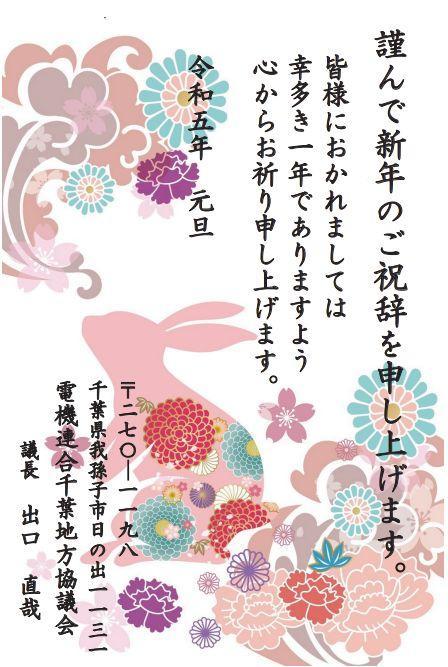 謹んで新年のご祝辞を申し上げます。
皆様におかれましては
幸多き一年でありますよう
心からお祈り申し上げます。
令和五年　元旦
〒二七〇―一一九八
千葉県我孫子市日の出一一三一
電機連合千葉地方協議会
議長　出口　直哉